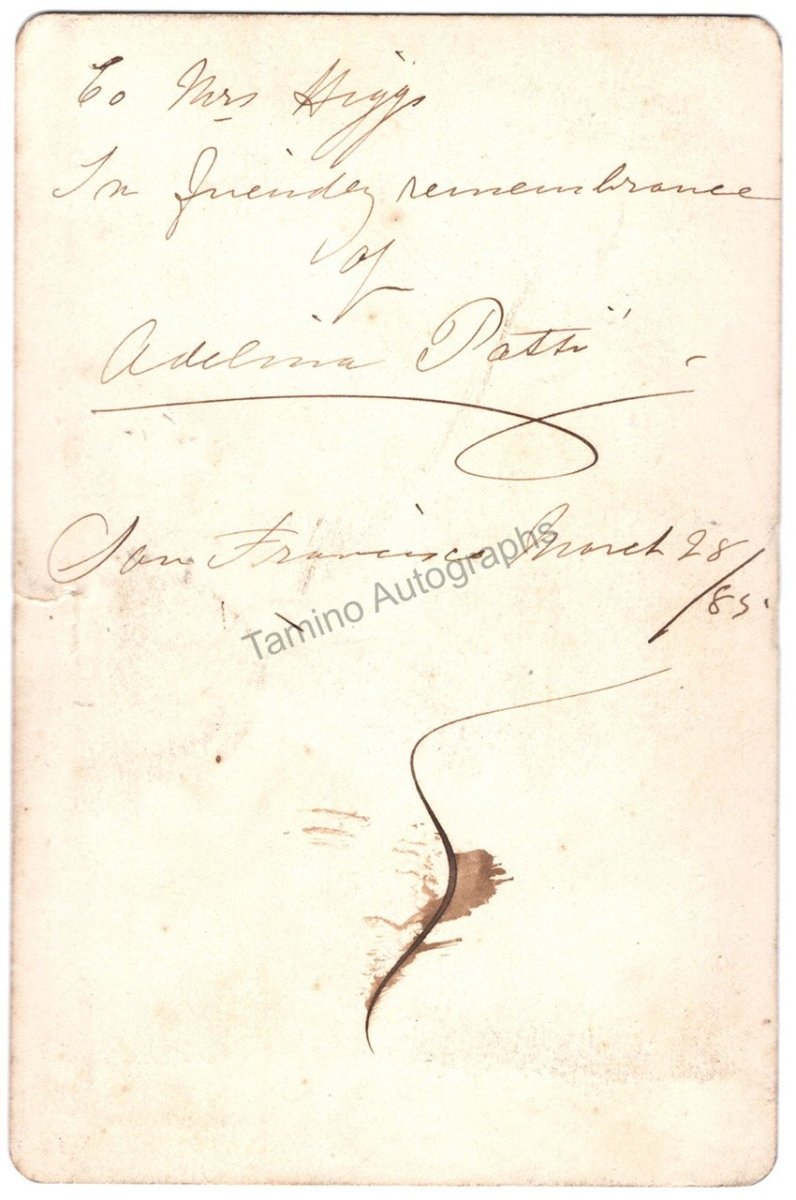 To Mrs Higgs
In friendly remembrance
of
Adelina Patti
San Francisco March 28
/85.
Tamino Autographs